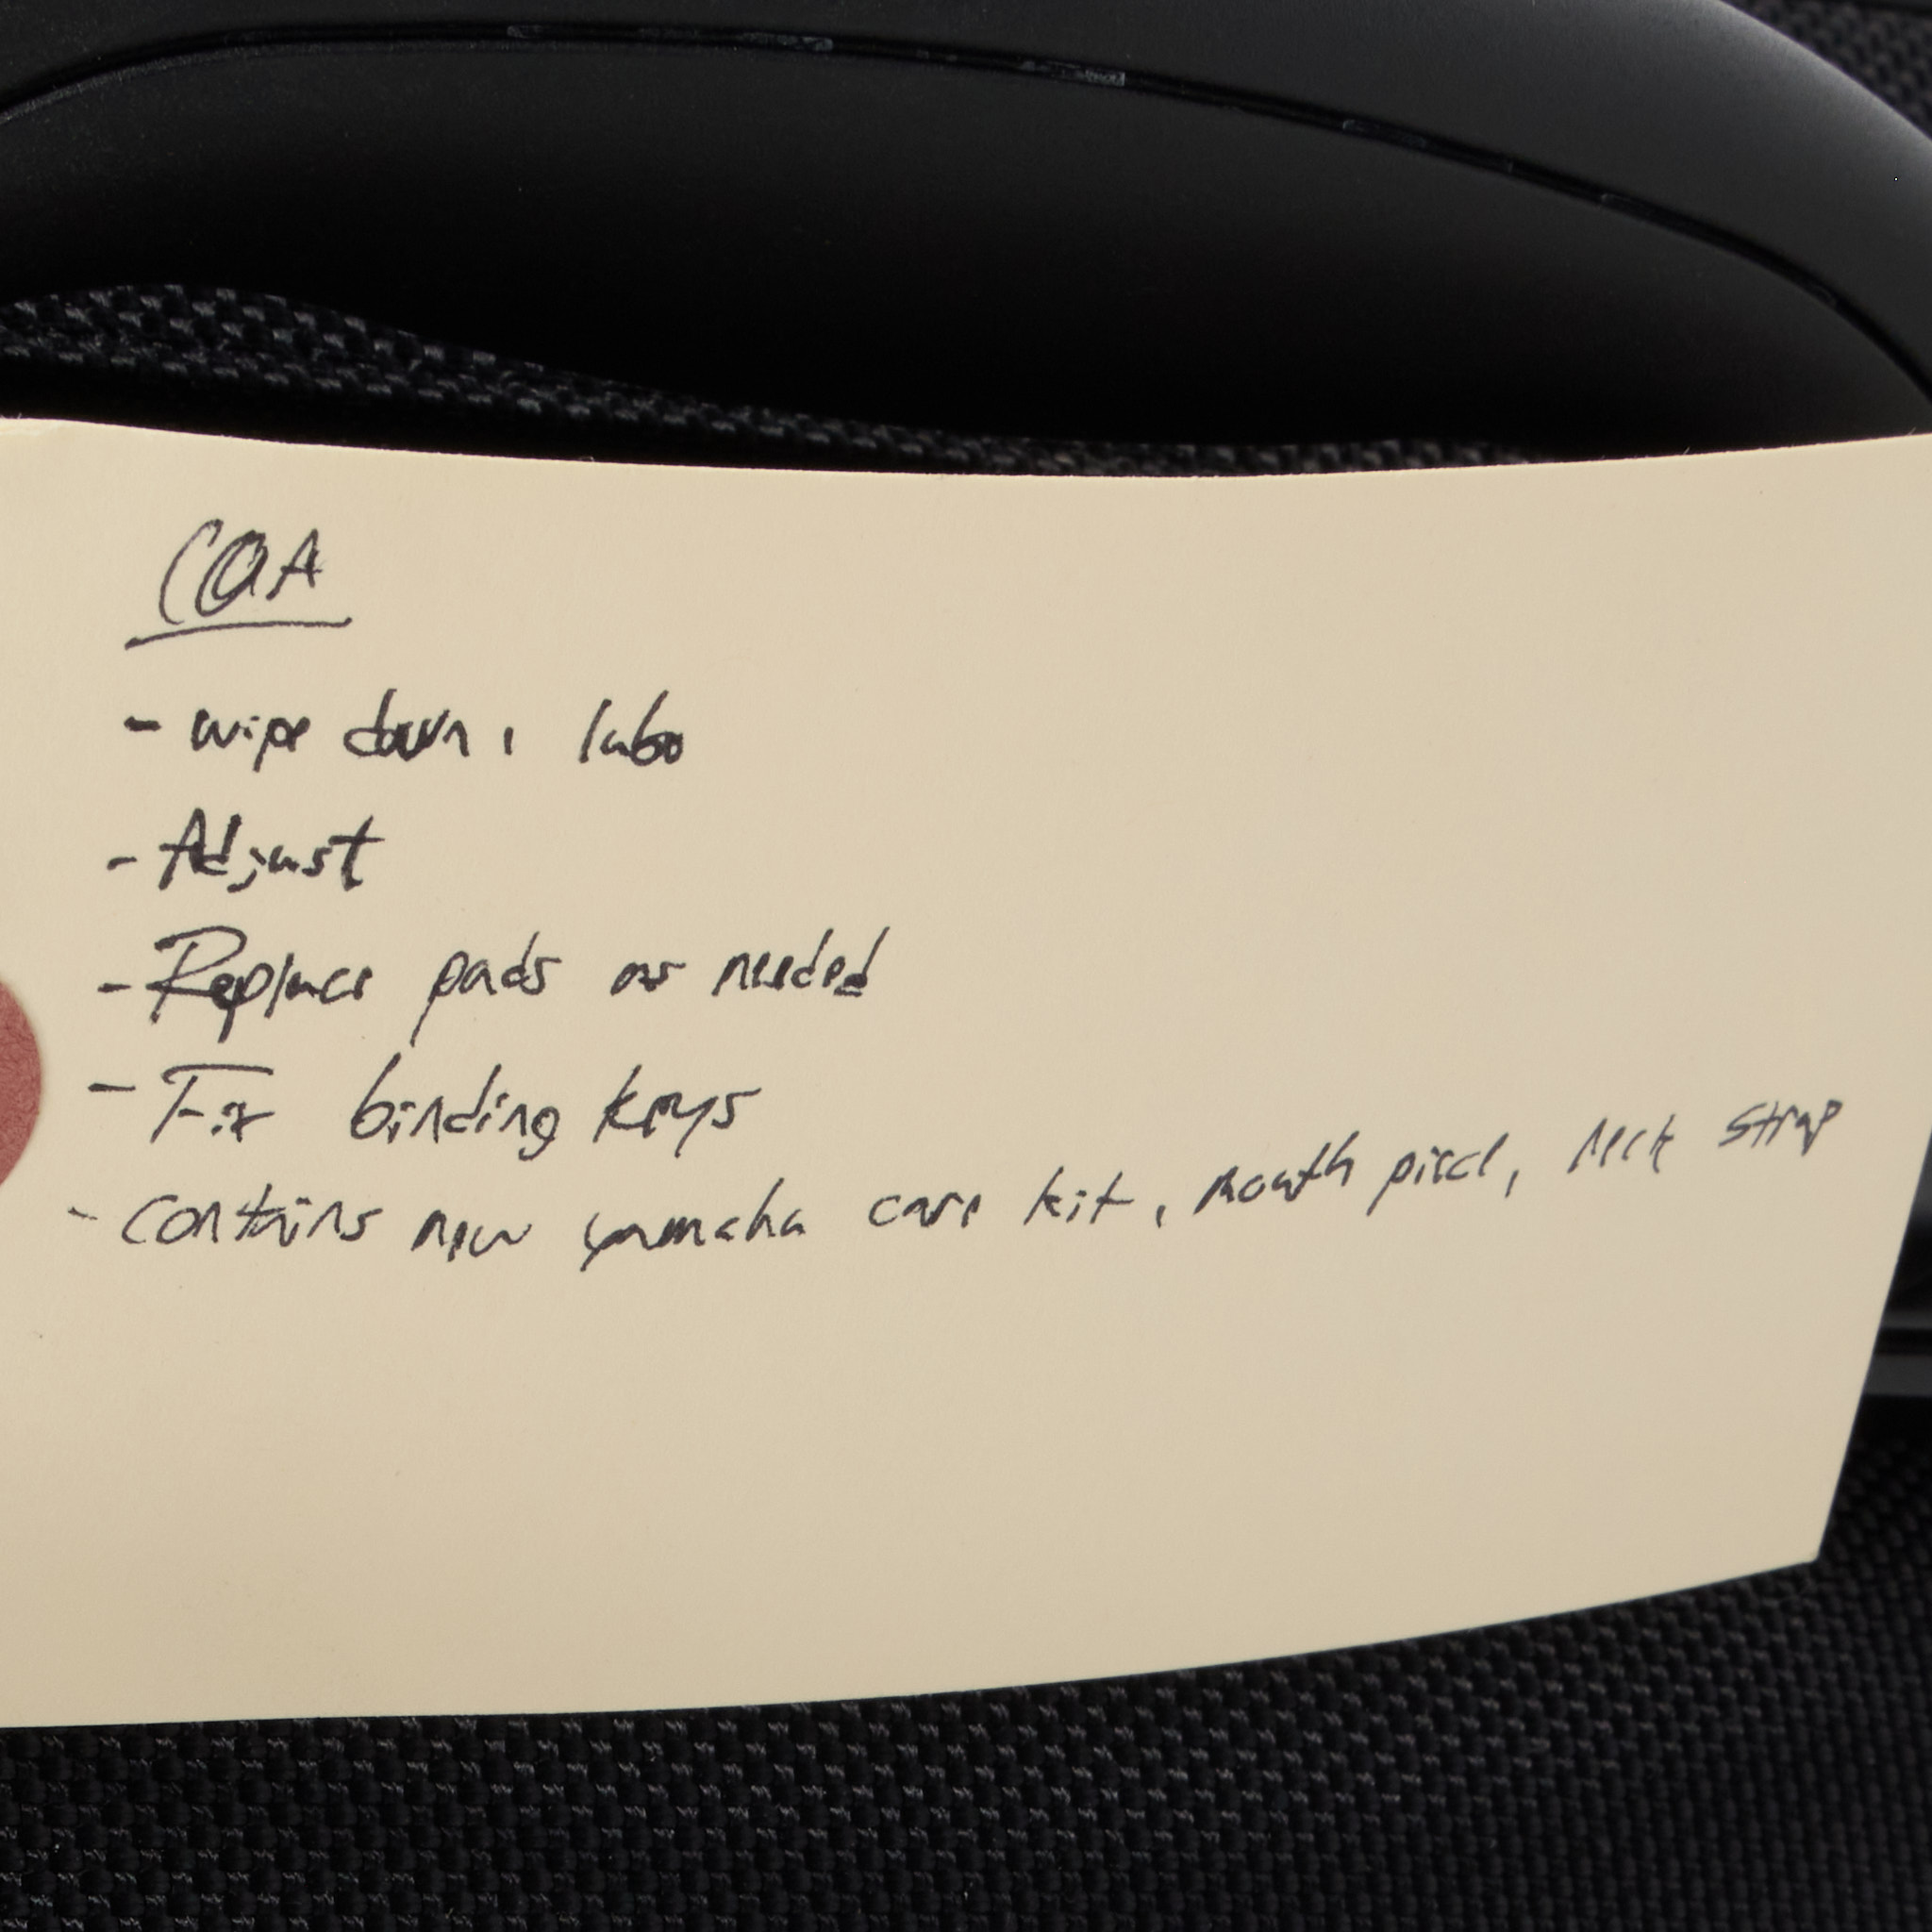 COA
- wipe down, labo
- Adjust
- Replace pads as needed
- Fix binding keys
- Contains new yamaha care kit, mouth piece, neck strap